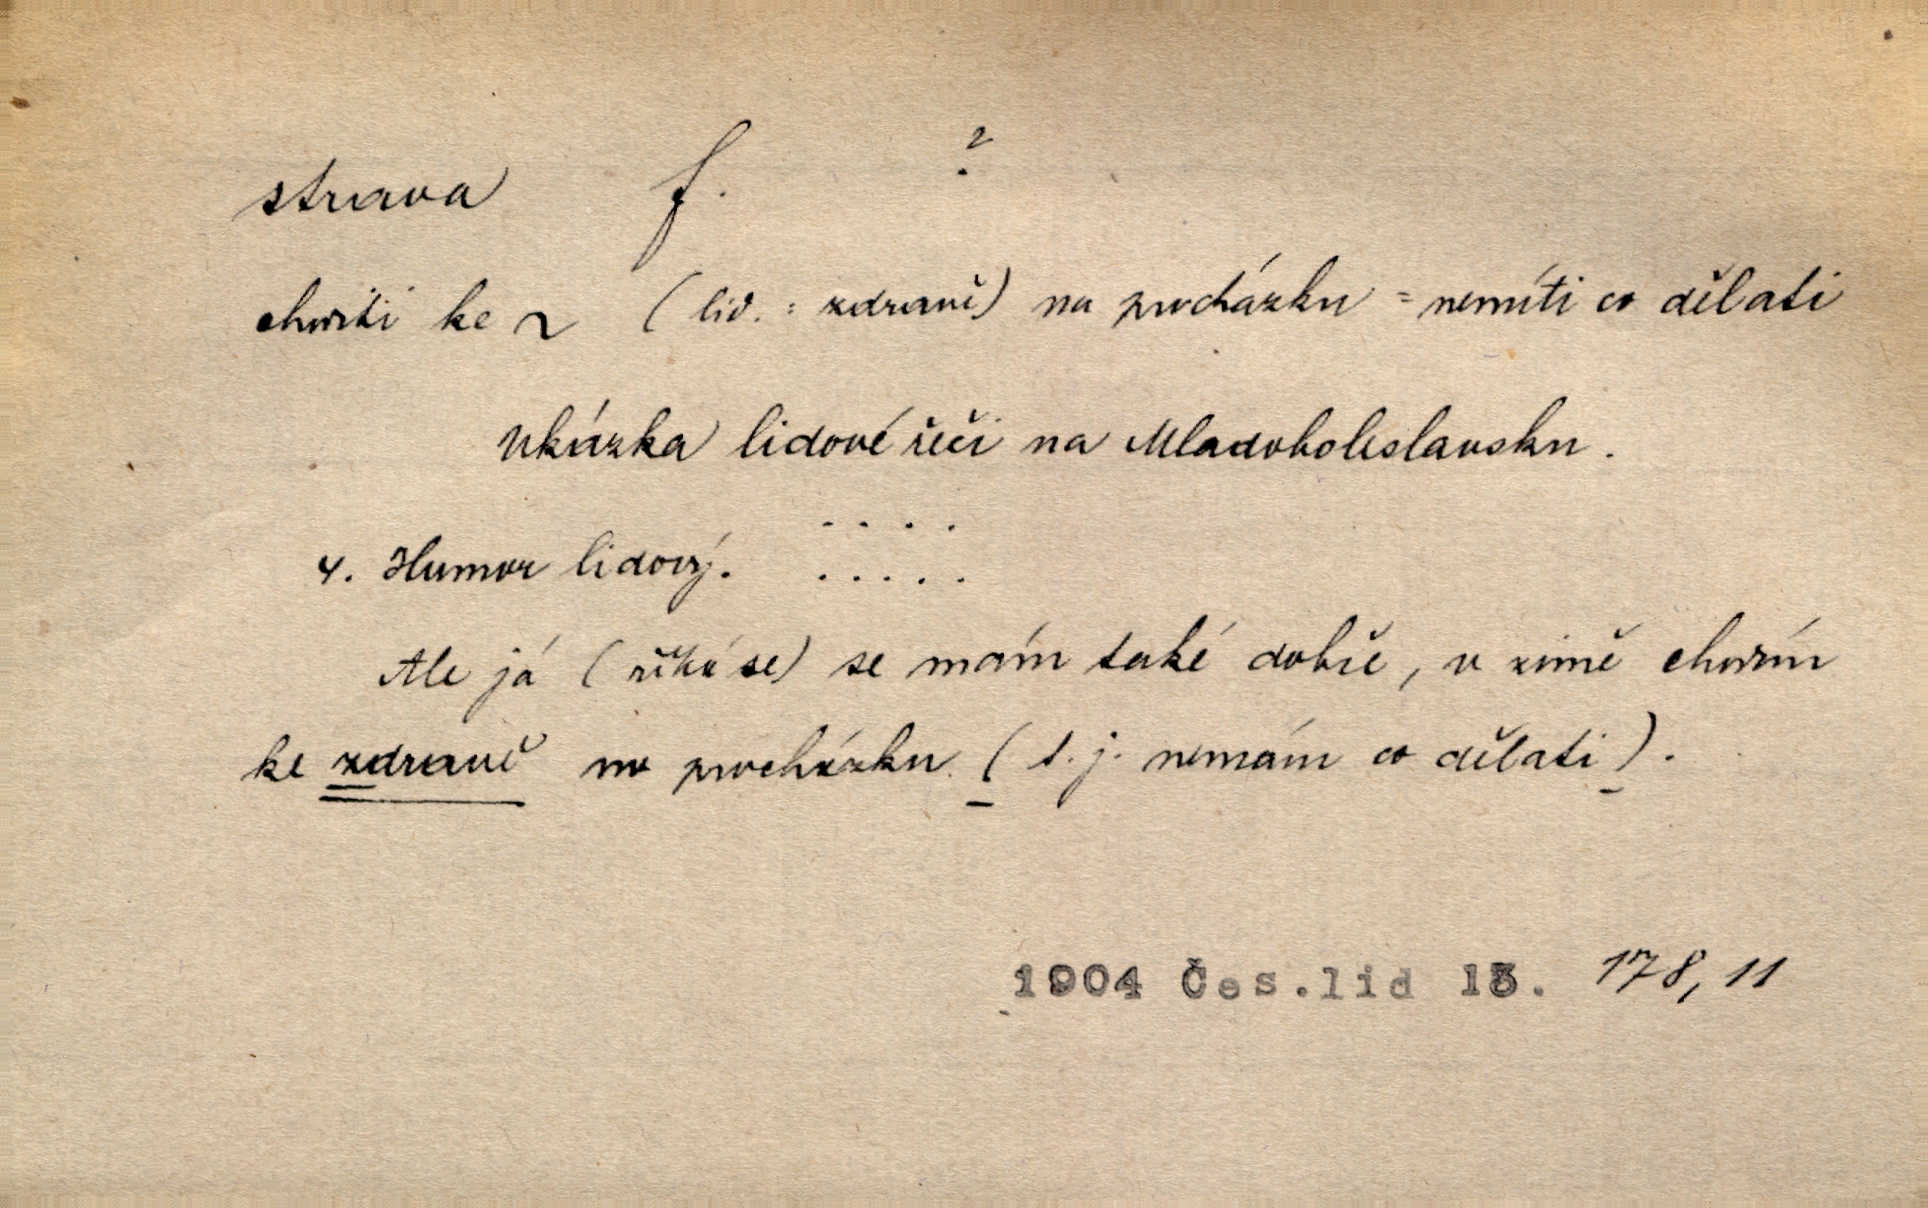 strava f. ?
choditi ke ~ (lid.: zdravě) na procházku = nemíti co dělati
Ukázka lidové řeči na Mladoboleslavsku.
....
4. Humor lidový. .....
Ale já (říká se) se mám také dobře, v zimě chodím
ke zdravě na procházku (t.j. nemám co dělati).
1904 Čes.lid 13. 178, 11